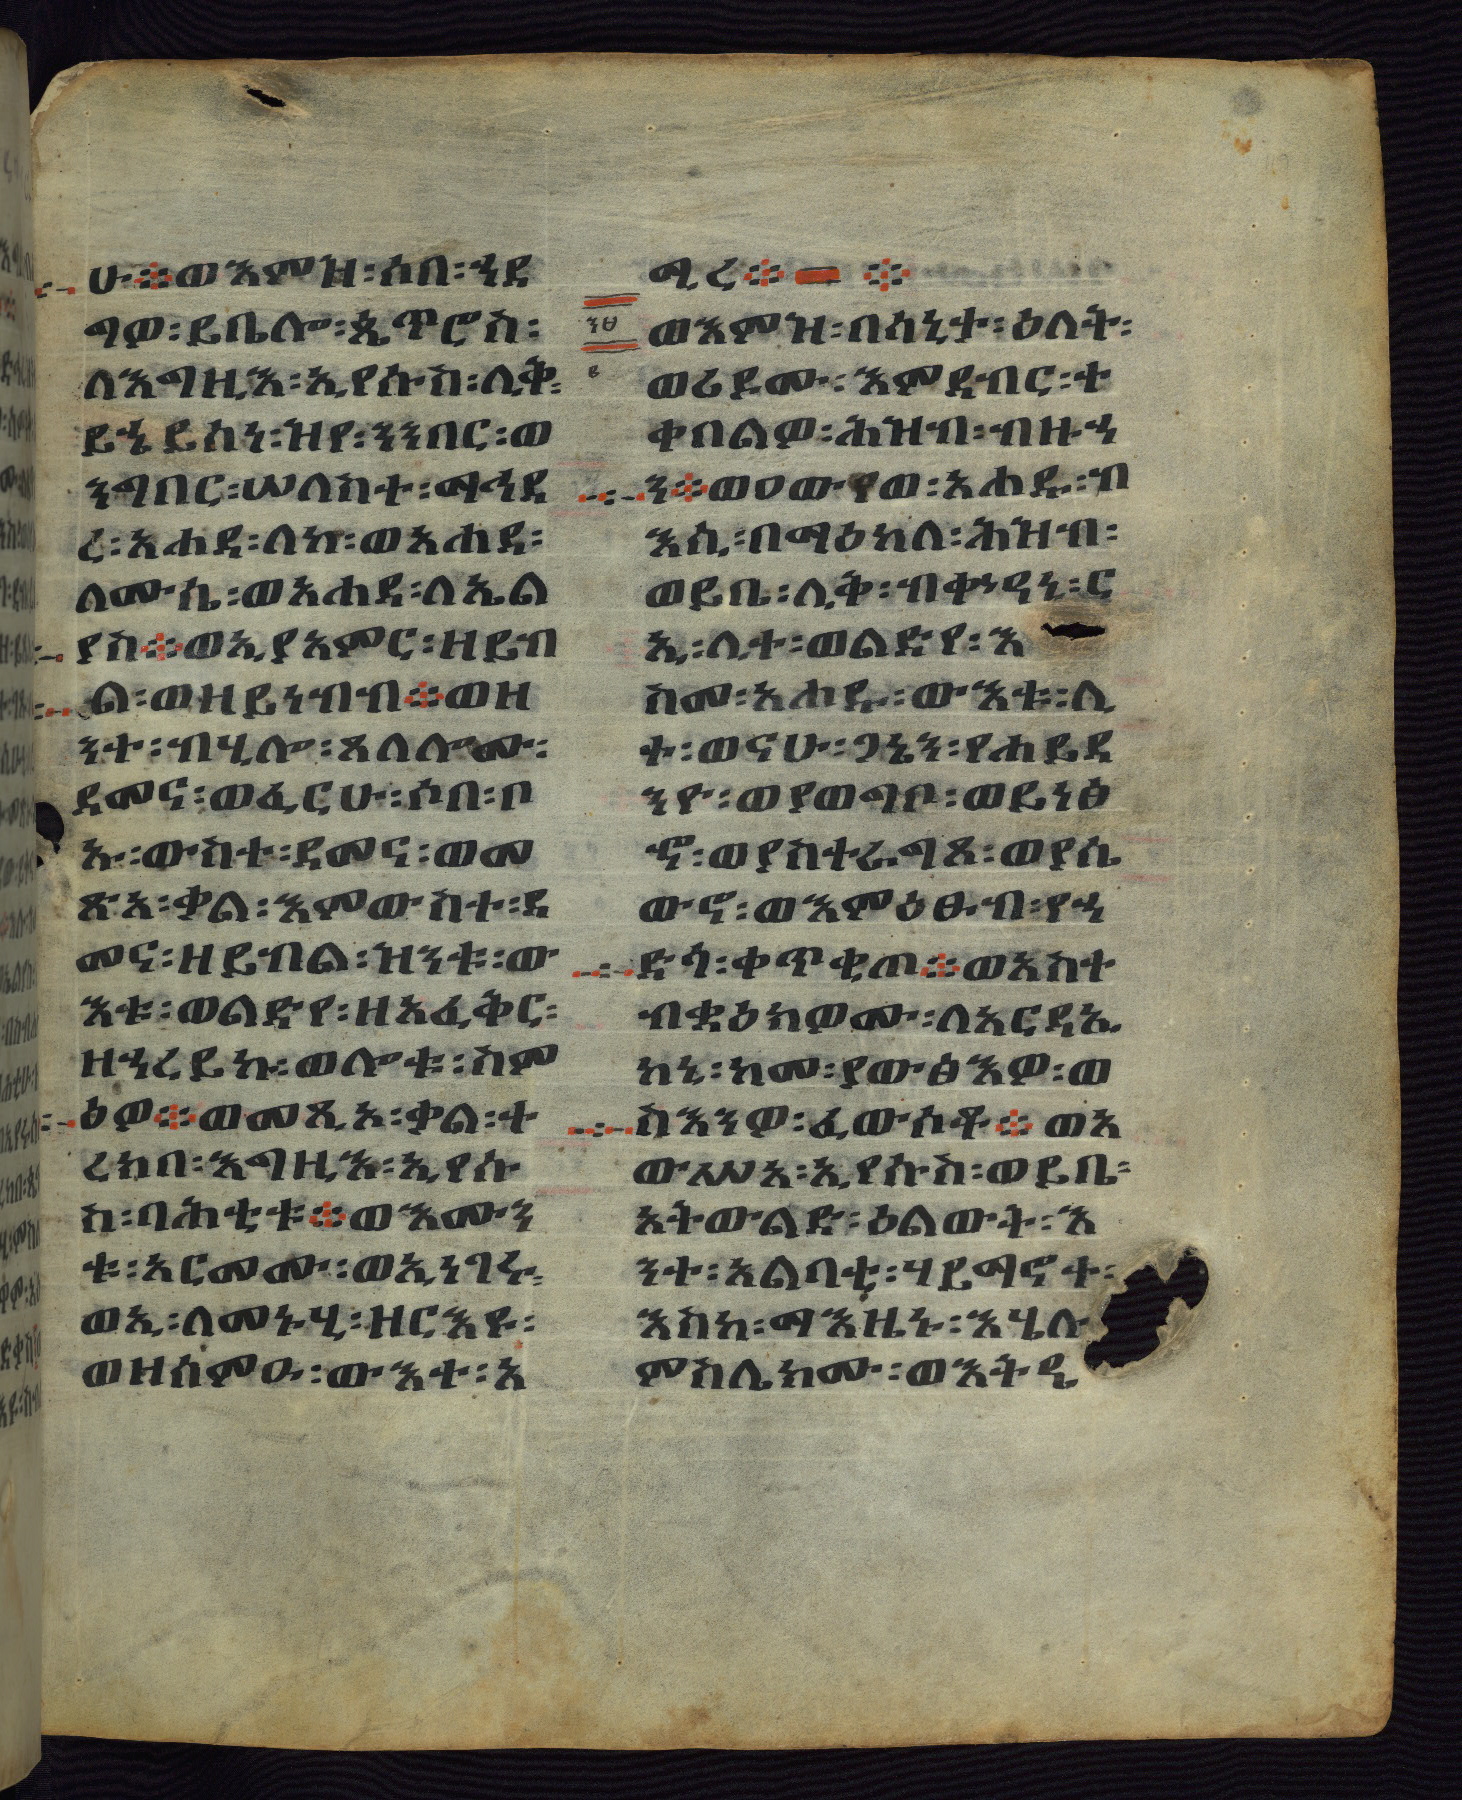 ሁ፨ወእምዝ፡ሶበ፡ኀደ
ግዎ፡ይቤሎ፡ጴጥሮስ፡
ለእግዚእ፡ኢየሱስ፡ሊቅ፡
ይኄይሰነ፡ዝየ፡ንንበር፡ወ
ንግበር፡ሠለስተ፡ማኅደ
ረ፡አሐደ፡ለከ፡ወአሐደ፡
ለሙሴ፡ወአሐደ፡ለኤል
ያስ፨ወኢያአምር፡ዘይብ
ል፡ወዘይነብብ፨ወዘ
ንተ፡ብሂሎ፡ጸለሎሙ፡
ደመና፡ወፈርሁ፡ሶበ፡ቦ
ኡ፡ውስተ፡ደመና፡ወመ
ጽአ፡ቃል፡እምውስተ፡ደ
መና፡ዘይብል፡ዝንቱ፡ው
እቱ፡ወልድየ፡ዘአፈቅር፡
ዘኀረይኩ፡ወሎቱ፡ስም
ዕዎ፨ወመጺኦ፡ቃል፡ተ
ረክበ፡እግዚእ፡ኢየሱ
ስ፡ባሕቲቱ፨ወእሙን
ቱ፡አርመሙ፡ወኢነገሩ፡
ወኢ፡ለመኑሂ፡ዘርእዩ፡
ወዘሰምዑ፡ውእተ፡አ
ሚረ፨ ፨
፶፱
ወእምዝ፡በሳኒታ፡ዕለት፡
፪
ወሪዶሙ፡እምደብር፡ተ
ቀበልዎ፡ሕዝብ፡ብዙኃ
ን፨ወዐውየወ፡አሐዱ፡ብ
እሲ፡በማዕከለ፡ሕዝብ፡
ወይቤ፡ሊቅ፡ብቍዓኒ፡ር
ኢ፡ሊተ፡ወልድየ፡እ
ስመ፡አሐዱ፡ውእቱ፡ሊ
ተ፡ወናሁ፡ጋኔን፡የሐይደ
ንዮ፡ወያወግቦ፡ወይነፅ
ኆ፡ወያስተራግጾ፡ወያሴ
ውኖ፡ወእምዕፁብ፡የኃ
ድጎ፡ቀጥቂጦ፨ወአስተ
ብቋዕክዎሙ፡ለአርዳኢ
ከኒ፡ከመ፡ያውፅእዎ፡ወ
ስእንዎ፡ፈውሶቶ፨ወአ
ውሥአ፡ኢየሱስ፡ወይቤ፡
ኦትውልድ፡ዕልውት፡እ
ንተ፡አልባቲ፡ሃይማኖተ፡
እስከ፡ማእዜኑ፡እሄሉ
ምስሌክሙ፡ወእትዔ